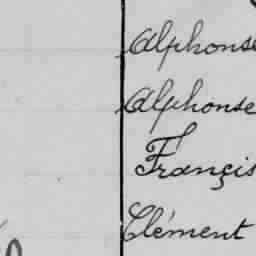 Alphonse
Alphonse
Françis
Clément